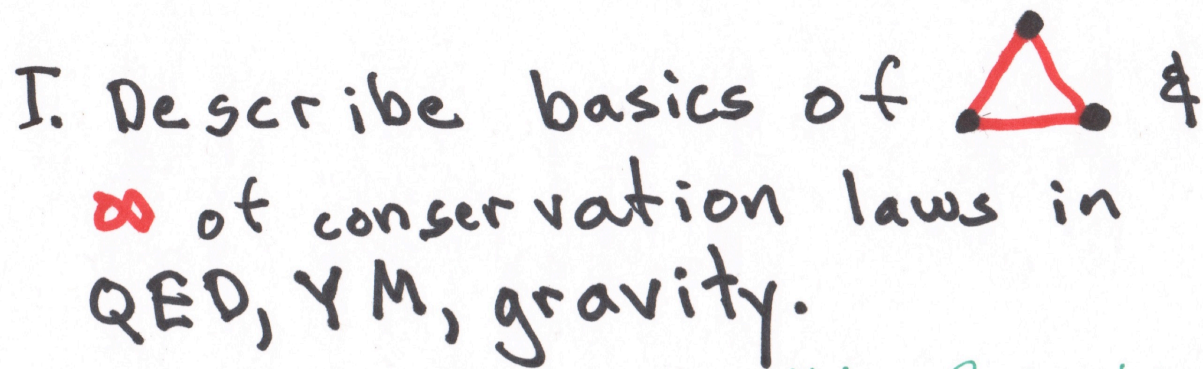 I. Describe basics of &
∞ of conservation laws in
QED, YM, gravity.